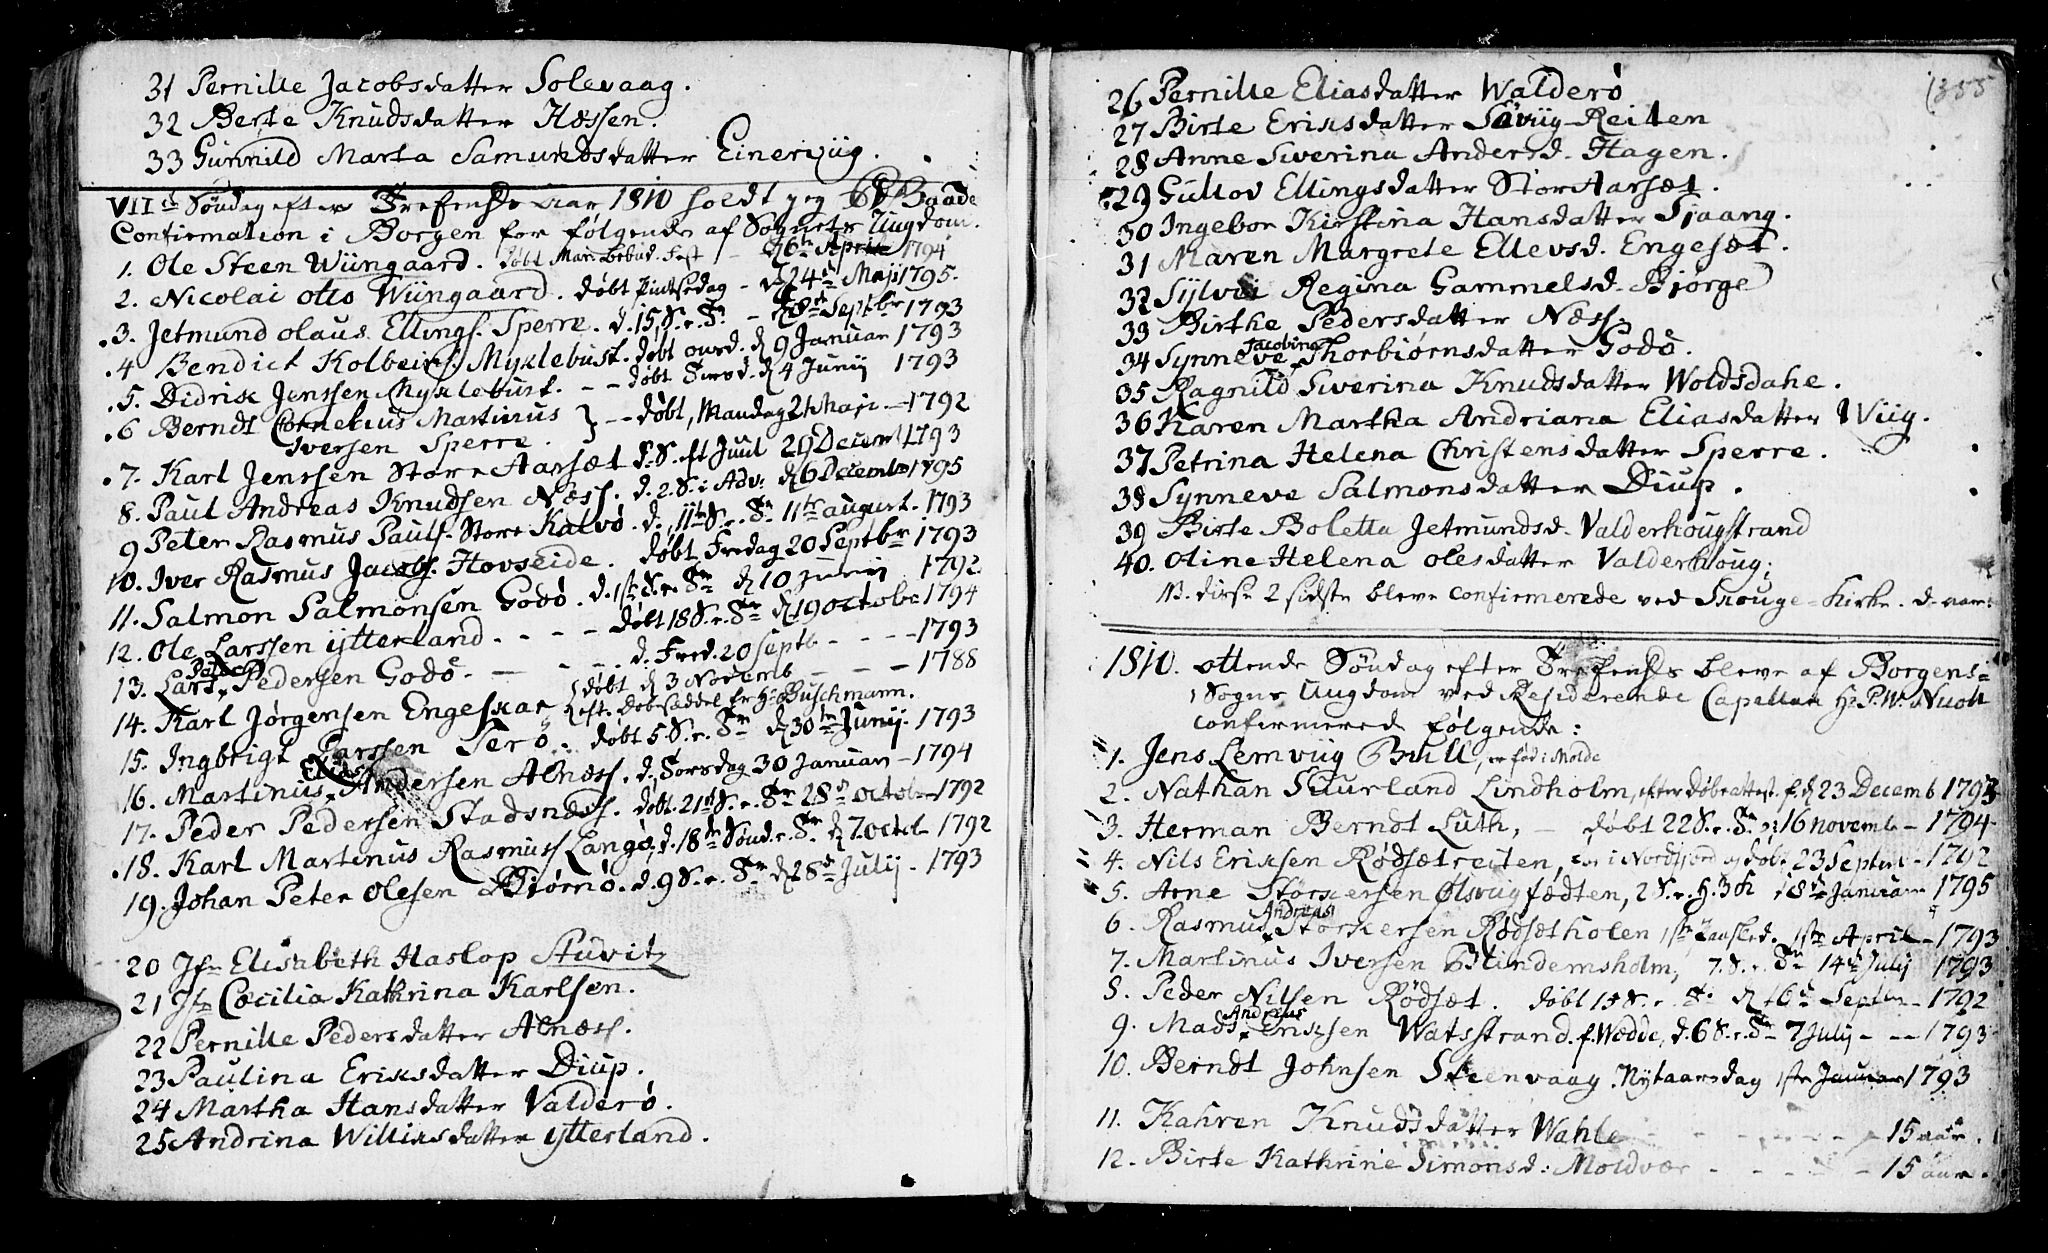 31 Pernille Jacobsdatter Solevaag.
32 Berte Knudsdatter Hæssen.
33 Gunnild Marta Samundsdatter Einerwiig.
VIIde Søndag efter Trefenheds aar 1810 holdt jeg Baade
Confirmation i Borgen for følgende af Sognets Ungdom.
1. Ole Steen Wiingaard. døbt Mariæ Bebud. Fest - d 6te April 1794
2. Nicolai Otto Wiingaard. døbt Pintsedag - d 24de Maji 1795.
3. Jetmund Olaus Ellings. Sperre. d. 15. S. e. Tr. - d 8de Septbr 1793
4 Bendict Kolbeins. Myklebust. døbt onsd. d 9 Januar 1793
5. Didrik Jenssen Myklebust. - - døbt Tirsd. d 4 Junij 1793
6 Berndt Cornelius Martinus } - - døbt, Mandag 21 Maji - 1792
Iversen Sperre.
7. Karl Jenssen Store Aarsæt d. S. eft Juul 29 Decemb 1793
8. Paul Andreas Knudsen Næss. d. 2. S. i Adv: d 6 Decemb 1795
9 Peter Rasmus Pauls. Store Kalvø. d. 11te S. e. Tr 11te august. 1793
10. Iver Rasmus Jacobs. Hovseide. døbt Fredag 20 Septbr 1793
11. Salmon Salmonsen Godø. d. 1ste S. e. Tr d 10 Junij 1792
12. Ole Larssen ytterland. - - - - døbt 18 S. e. Tr d 19 octobr 1794
13. Lars Peder Pedersen Godö. - - - d. Fred. 20 Septb - - - 1793
14. Karl Jørgensen Engeskar { døbt d 3 Novemb - - - 1788
eft. Døbesaddel fr Hr Buschmann.
15. Ingbrigt Larssen Terø. døbt 5 S. e. Tr d 30te Junij. 1793
16. Martinus Elias Andersen Alnæss. d. Torsdag 30 Januari - 1794
17. Peder Pedersen Stadsnæss. døbt. 21de S. e. Tr 28de octob 1792
18. Karl Martinus Rasmuss Langø, d. 18de Sönd. e. Tr d 7 octob 1792
19. Johan Peter Olesen Biørnø. d. 9 S. e. Tr d 28de Julij. 1793
20 Jfr Elisabeth Haslop Stüvitz
21 Jfr Cœcilia Kathrina Karlsen.
22 Pernille Pedersdatter Alnæss.
23 Paulina Eriksdatter Diup.
24 Martha Hansdatter Valderö.
25 Andrina Williksdatter ytterland.
1355
26 Pernille Eliasdatter Walderö
27 Birte Eriksdatter Sæviig-Reiten
28 Anne Siverina Andersd. Hagen.
29 Gullov Ellingsdatter Stor Aarsæt.
30 Ingebor Kirstina Hansdatter Sjaang.
31 Maren Margrete Ellevsd. Engesæt.
32 Sylvei Regina Gammelsd. Bjørge
33 Birthe Pedersdatter Næss
34 Synneve Jacobina Thorbiørnsdatter Godö.
35 Ragnild Siverina Knudsdatter Woldsdahe.
36 Karen Martha Andriana Eliasdatter Wiig.
37 Petrina Helena Christensdatter Sperre.
38 Synneve Salmonsdatter Diup.
39 Birte Boletta Jetmundsd. Valderhougstrand
40. Oline Helena Olesdatter Valderhoug.
NB. disse 2 sidste bleve Confirmerede ved Skouge-Kirke.
1810. ottende Söndag efter Trefenheds bleve af Borgens-
Sogns Ungdom ved Residerende Capellan Hr P. W.
confirmered følgende:
1. Jens Lemviig Bull, er fød i Molde
2. Nathan Suurland Lindholm, efter Døbeattest. f. d 23 Decemb 1793
3. Herman Berndt Luth, - døbt 22 S. e. Tr 16 novemb - 1794
4. Nils Eriksen Rødsætreiten, er i Nordfjord og døbt 23 Septem - 1792
5. Arne Storkersen Ølsvig födten, 2 S. e. H. 3 K 18de Januar 1795
6. Rasmus Andreas Storkersen Rødsætholen 1ste Paasked. 1ste April - 1793
7. Martinus Iversen Blindemsholm, 7. S. e. Tr 14de July 1793
8. Peder Nilsen Rødsæt. døbt 15 S. e. Tr d 16de Septbr - 1792
9. Mads Andreas Eriksen Watsstrand. f. Wedde, d. 6 S. e. Tr 7 July - - 1793
10. Berndt Johnsen Steenvaag. Nytaarsdag 1ste Januar 1793
11. Kahren Knudsdatter Wahle - - - - - 15 aar.
12. Birte Kathrine Simonsd: Moldvær - - - - 15 aar.